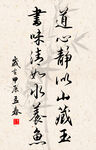 道心静似山藏玉
書味清如水養魚
歲在甲辰孟春